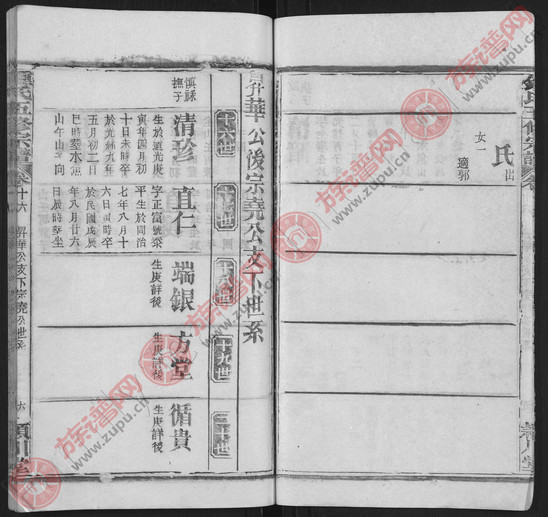 氏出
女一
適郭
昇華公後宗堯公支下世系
十六世
十七世
十八世
十九世
二十世
慎祿撫子
清珍
生於道光庚
寅年四月初
十日未時卒
於光緒九年
五月初二日
巳時葬水
山午山子向
直仁
字正富號榮
平生於同治
七年八月十
六日寅時卒
於民國戊辰
年八月廿六
日辰時葬坐
端銀
生庚詳後
方堂
生庚詳後
循貴
生庚詳後
氏五修宗譜
卷十六
昇華公支下宗堯公世系
六
潁川堂
族谱网
www.zupu.cn